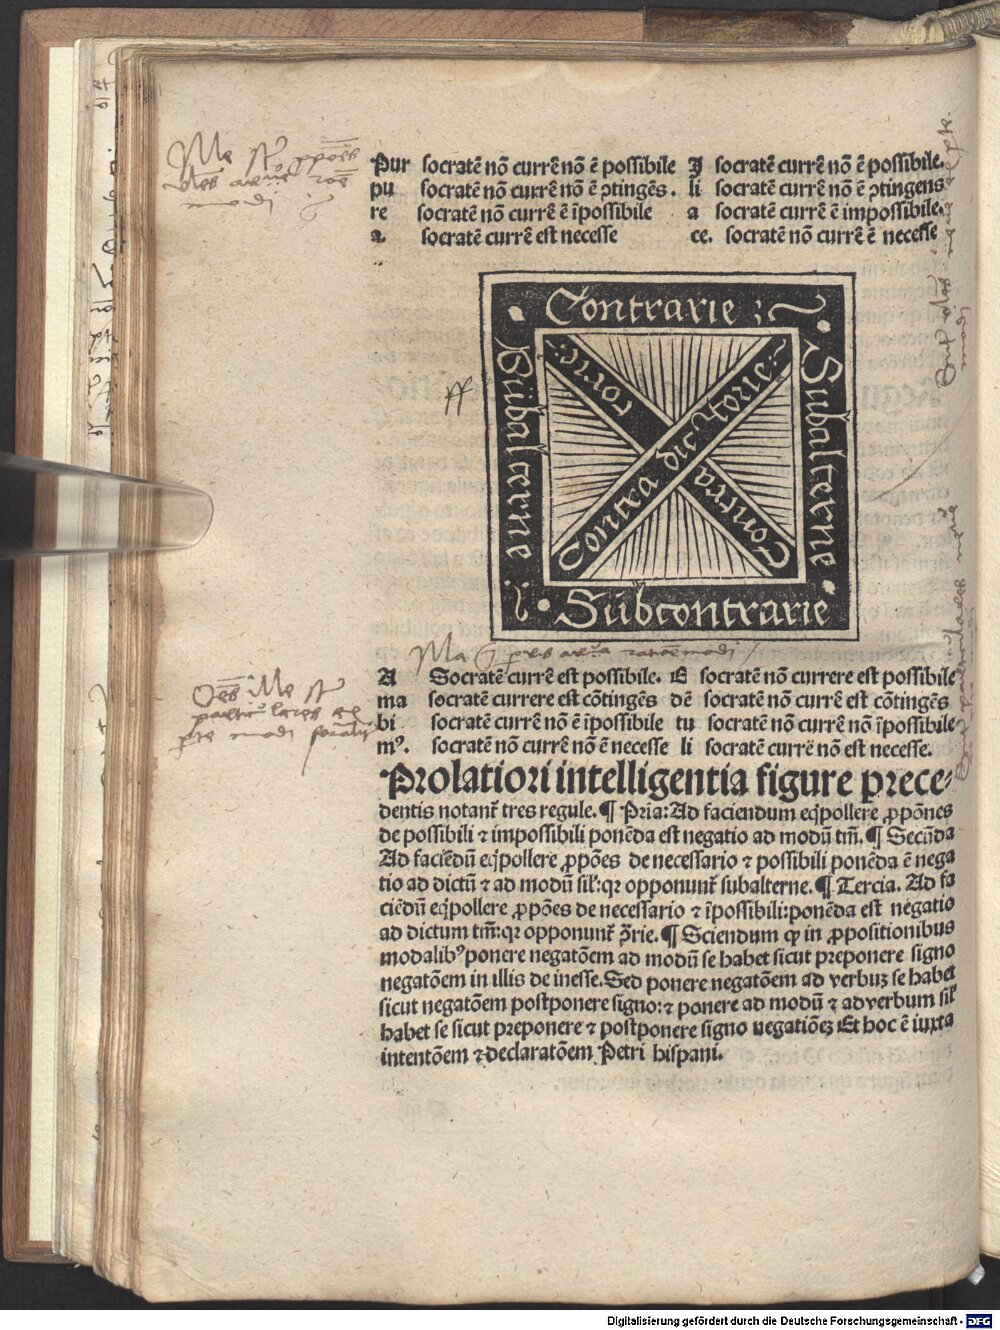 Pur socratē nō currē nō ē possibile J socratē currē nō ē possibile.
pu socratē nō currē nō ē ꝯtingēs. li socratē currē nō ē ꝯtingens
re socratē nō currē ē īpossibile a socratē currē ē impossibile.
a. socratē currē est necesse ce. socratē nō currē ē necesse
Contrarie
Subalterne
Subalterne
Contra dic torie
Contra torie
Subcontrarie
A Socratē currē est possibile. E socratē nō currere est possibile
ma socratē currere est cōtingēs dē socratē nō currē est cōtingēs
bi socratē currē nō ē īpossibile tu socratē nō currē nō īpossibile
mꝰ. socratē currē nō ē necesse li socratē currē nō est necesse.
Prolatiori intelligentia figure prece⸗
dentis notant᷑ tres regule. ¶ Pria: Ad faciendum eq̇pollere ꝓpōnes
de possibili ⁊ impossibili ponēda est negatio ad modū tm̄. ¶ Secūda
Ad faciēdū eq̇pollere ꝓpōes de necessario ⁊ possibili ponēda ē nega
tio ad dictū ⁊ ad modū sil᷑: qꝛ opponunt᷑ subalterne. ¶ Tercia. Ad fa
ciēdū eq̇pollere ꝓpōes de necessario ⁊ īpossibili: ponēda est negatio
ad dictum tm̄: qꝛ opponunt᷑ ꝯ̄rie. ¶ Sciendum ꝙ in ꝓpositionibus
modalibꝰ ponere negatōem ad modū se habet sicut preponere signo
negatōem in illis de inesse. Sed ponere negatōem ad verbuꝫ se habet
sicut negatōem postponere signo: ⁊ ponere ad modū ⁊ ad verbum sil᷑
habet se sicut preponere ⁊ postponere signo negationēꝫ Et hoc ē iuxta
intentōem ⁊ declaratōem Petri hispani.
Digitalisierung gefördert durch die Deutsche Forschungsgemeinschaft - DFG